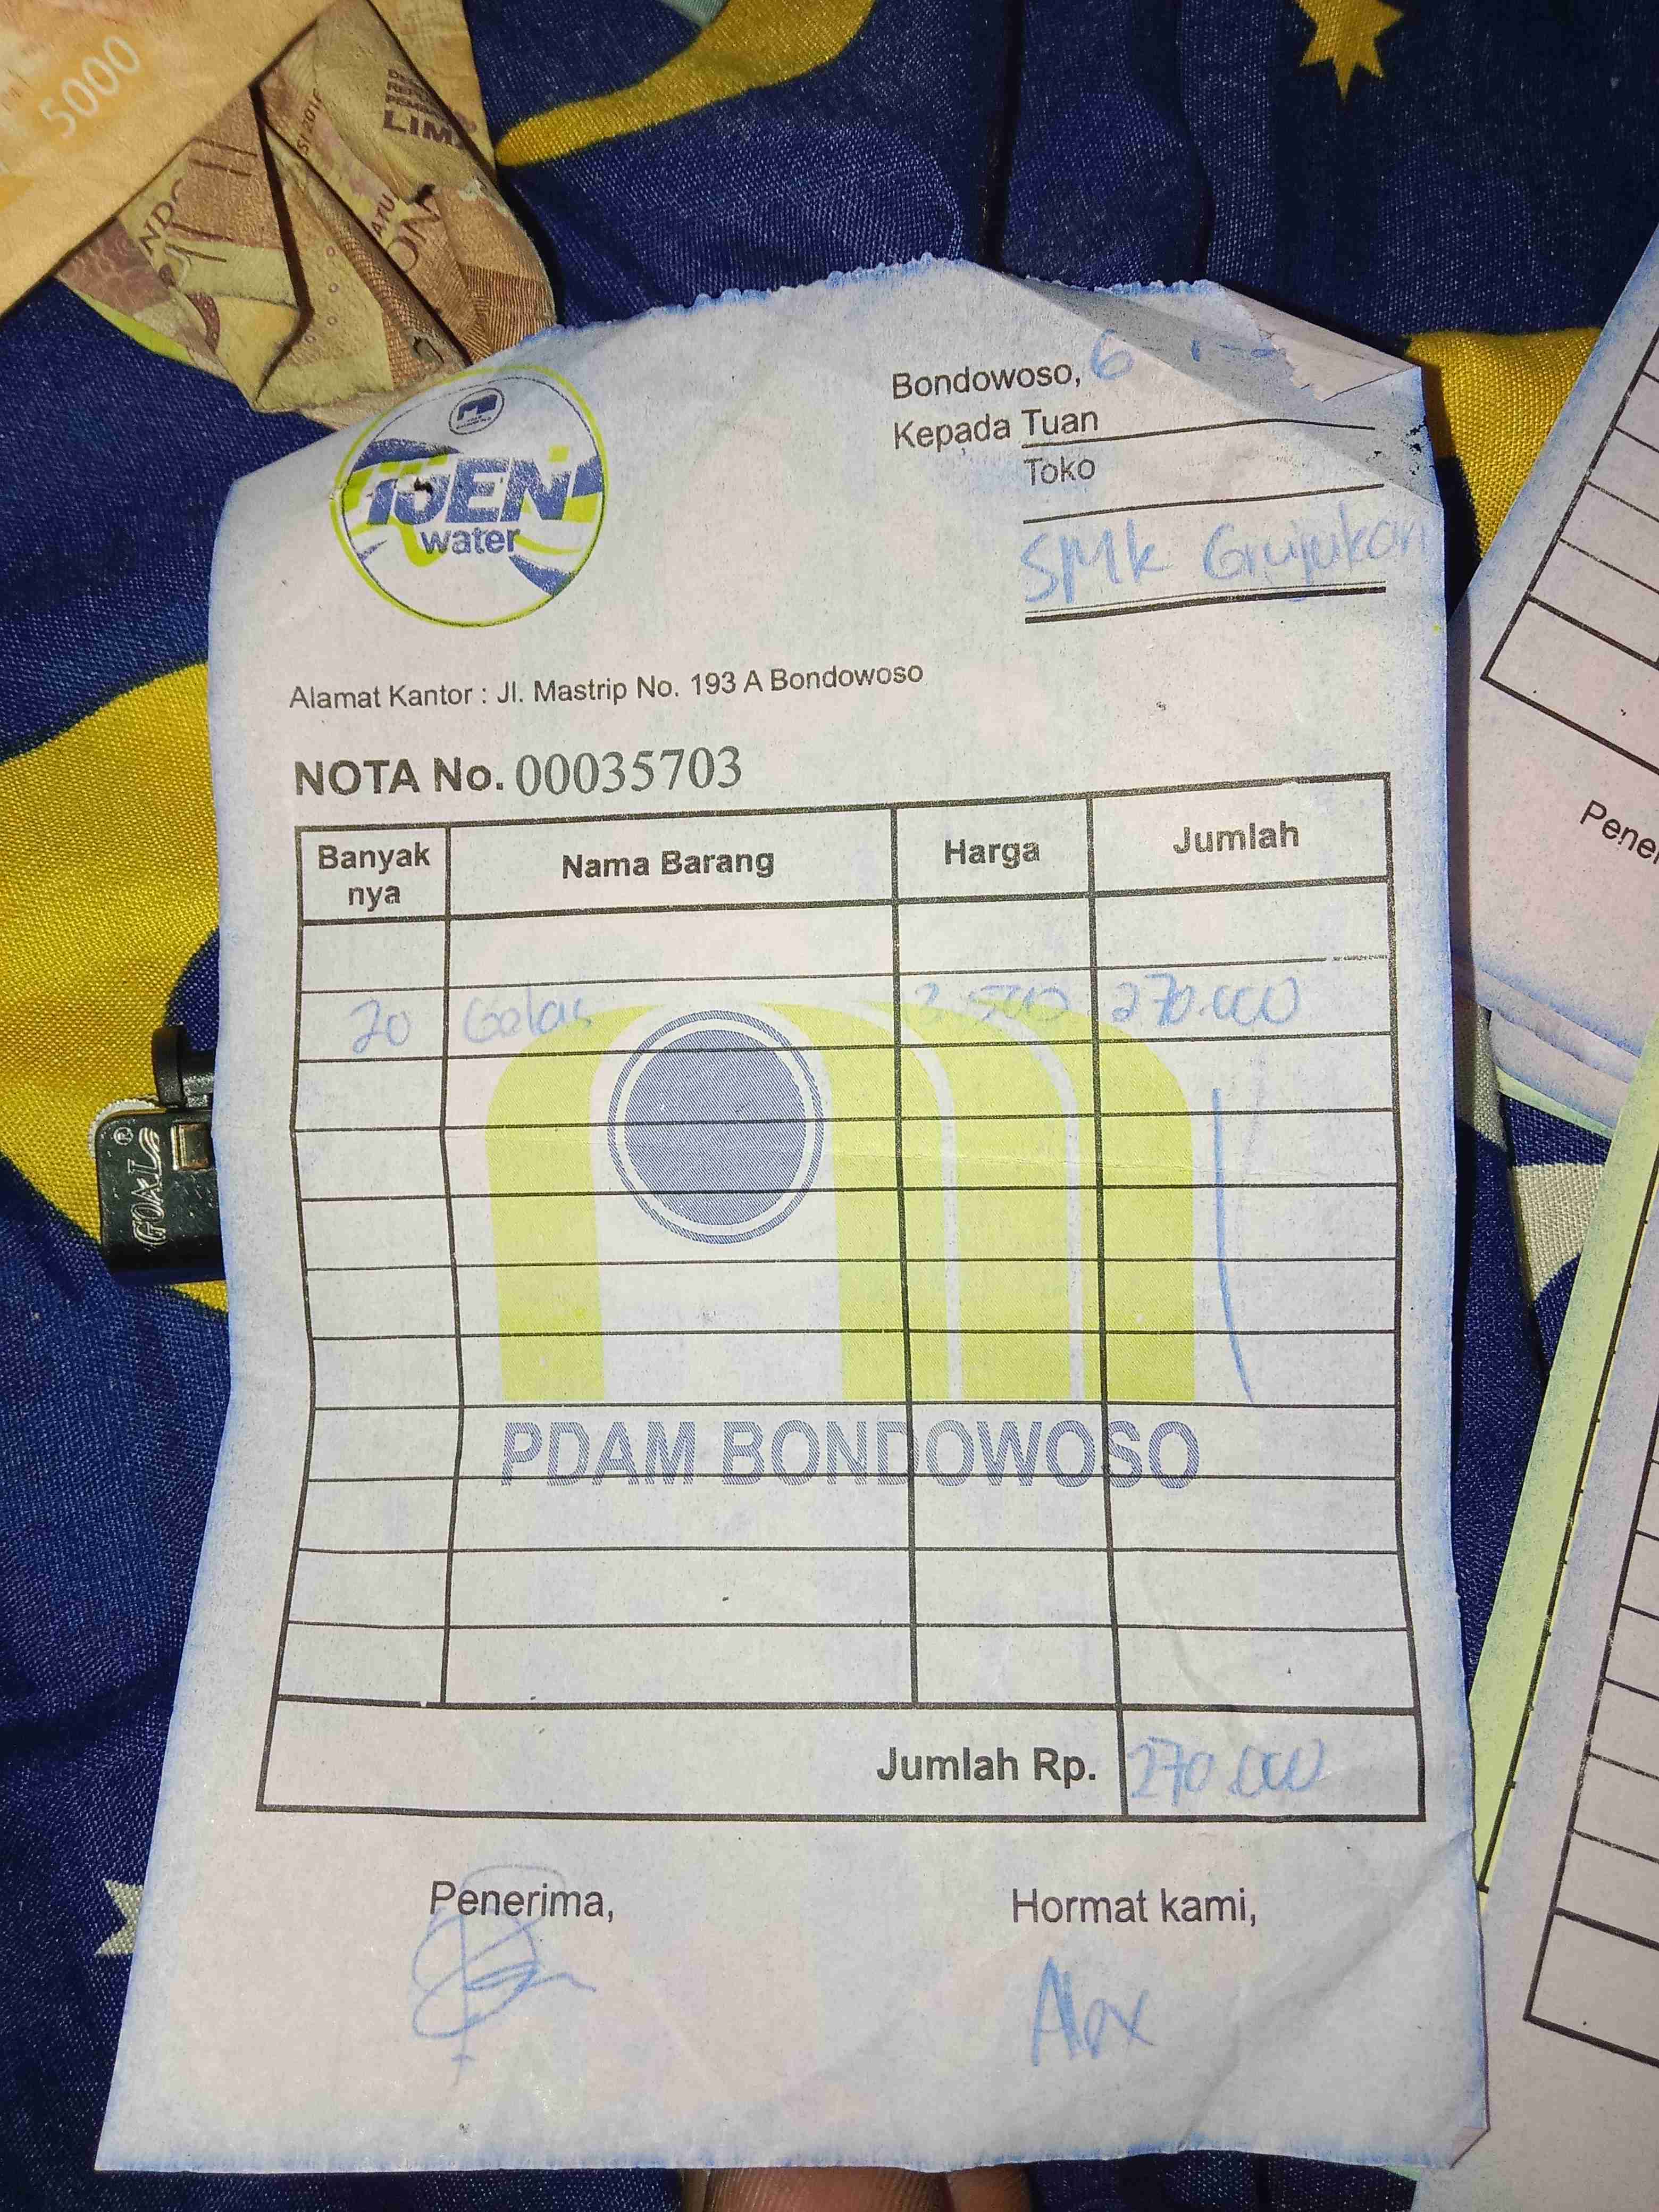 5000
LIM
SI 2016
ATU
IJEN
water
Bondowoso, 6
Kepada Tuan
Toko
SMK Grujukan
Alamat Kantor : Jl. Mastrip No. 193 A Bondowoso
NOTA No. 00035703
Banyak nya Nama Barang Harga Jumlah
20 Gelas 3.500 270.000
PDAM BONDOWOSO
Jumlah Rp. 270.000
Penerima, Hormat kami,
Alex
GOAL
Pene